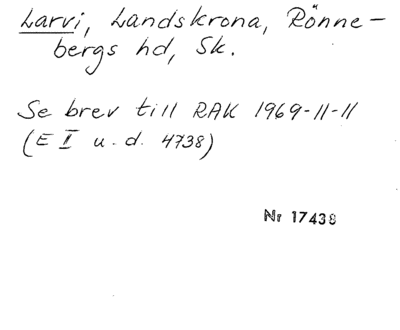 Larvi, Landskrona, Rönne-
bergs hd, Sk.
Se brev till RAK 1969-11-11
(E II u. d. 4738)
Nr 17438